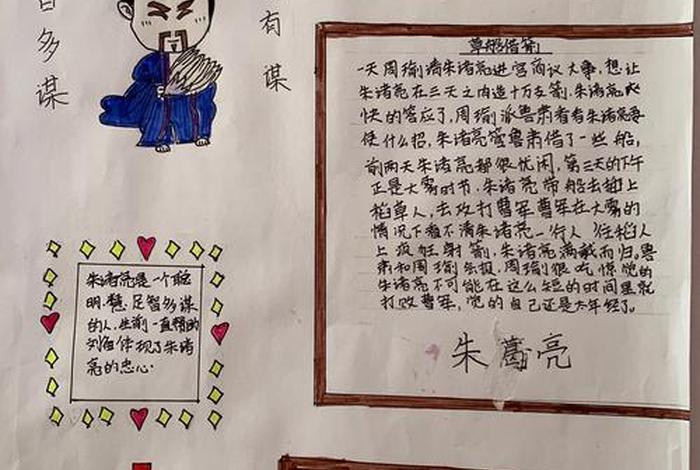 百多谋
有谋
草船借箭
一天周瑜请朱诸亮进宫商议大事，想让
朱诸亮在三天之内造十万支箭，朱诸亮爽
快的答应了，周瑜派鲁肃看看朱诸亮要
使什么招，朱诸亮管鲁肃借了一些船，
前两天朱诸亮都很忧闲，第三天的下午
正是大雾时节，朱诸亮带船去
稻草人，去攻打曹军曹军在大雾的
情况下看不清朱诸亮一行人往船人
上疯狂射箭，朱诸亮满载而归。鲁
肃和周瑜，周瑜很吃惊觉的
朱诸亮不可能在这么短的时间里就
打败曹军，觉的自己还是太年轻了。
朱葛亮
朱诸亮是一个聪
明，慧，足智多谋
的人，生前一直辅的
刘备体现了朱诸
亮的忠心.